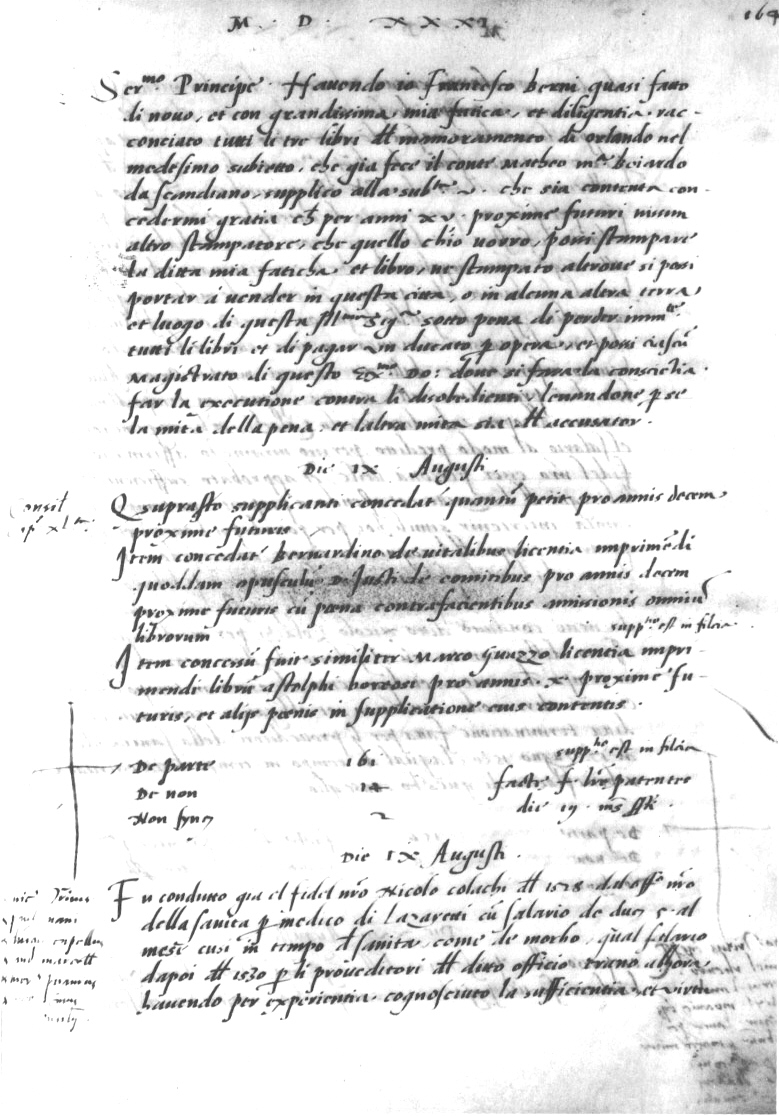 M · D · XXXI
164
Ser.mo Principe. Havendo io Francesco berni quasi fatto
di novo, et con grandissima mia fatica, et diligentia, rac-
conciato tutti li tre libri dell inamoramento di orlando nel
medesimo subietto, che gia fece il conte Matheo m.a boiardo
da scandiano, supplico alla sub.ta v. che sia contenta con-
cedermi gratia ch per anni xv proximi futuri niuun
altro stampatore, che quello ch'io vorro, possi stampare
la ditta mia faticha et libro, ne stampato altrove si possi
portar à vender in questa citta, o in alcuna altra terra,
et luogo di questa Ill.ma Sig.a sotto pena di perder imm.te
tutti li libri et di pagar un ducato p opera, et possi ciascũ
Magistrato di questo Ex.mo Do: dove si fara la conscictia
far la executione contra li disobedienti, levandone p se
la mita della pena, et laltra mita sia dell accusator.
Die IX Augusti.
Consil
xl.ta
Q suprasto supplicanti concedat quantũ petit pro annis decem
proxime futuris
Item concedat bernardino de vitalibus licentia imprimẽdi
quoddam opusculũ D. Justi de comitibus pro annis decem
proxime futuris cũ poena contrafacientibus amissionis omniũ
librorum
supp.tio est in filcia
Item concessũ fuit similiter Marco Guazzo licentia impri-
mendi librũ astolphi boreosi pro annis x proxime fu-
turis, et alijs poenis in supplicatione eius contentis.
supp.tio est in filcia
De parte 161
De non 14
Non syn 2
facte f lrẽ patentes
die 19
Die IX Augusti.
Fu condutto gia el fidel nrõ Nicolo colachi dell 1528 dal offõ nrõ
della sanita p medico di Lazaretti cũ salario de duc 5 al
mese cusi in tempo d sanita, come de morbo, qual salario
dapoi dell 1530 p li proveditori dell ditto officio erano alhora
havendo per experientia cognosciuto la sufficientia, et virtu